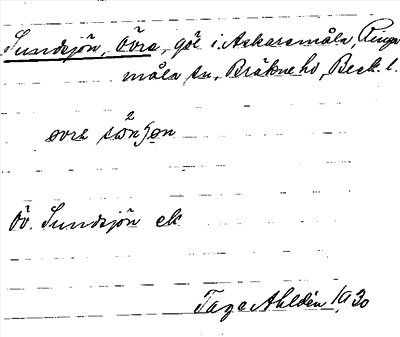 Sundsjön, Övre, göl i Askaremåla, Ringa
måla sn, Bräkne hd, Blek. l.
övre sönʃən
Öv. Sundsjön ek
Tage Ahldén 1930